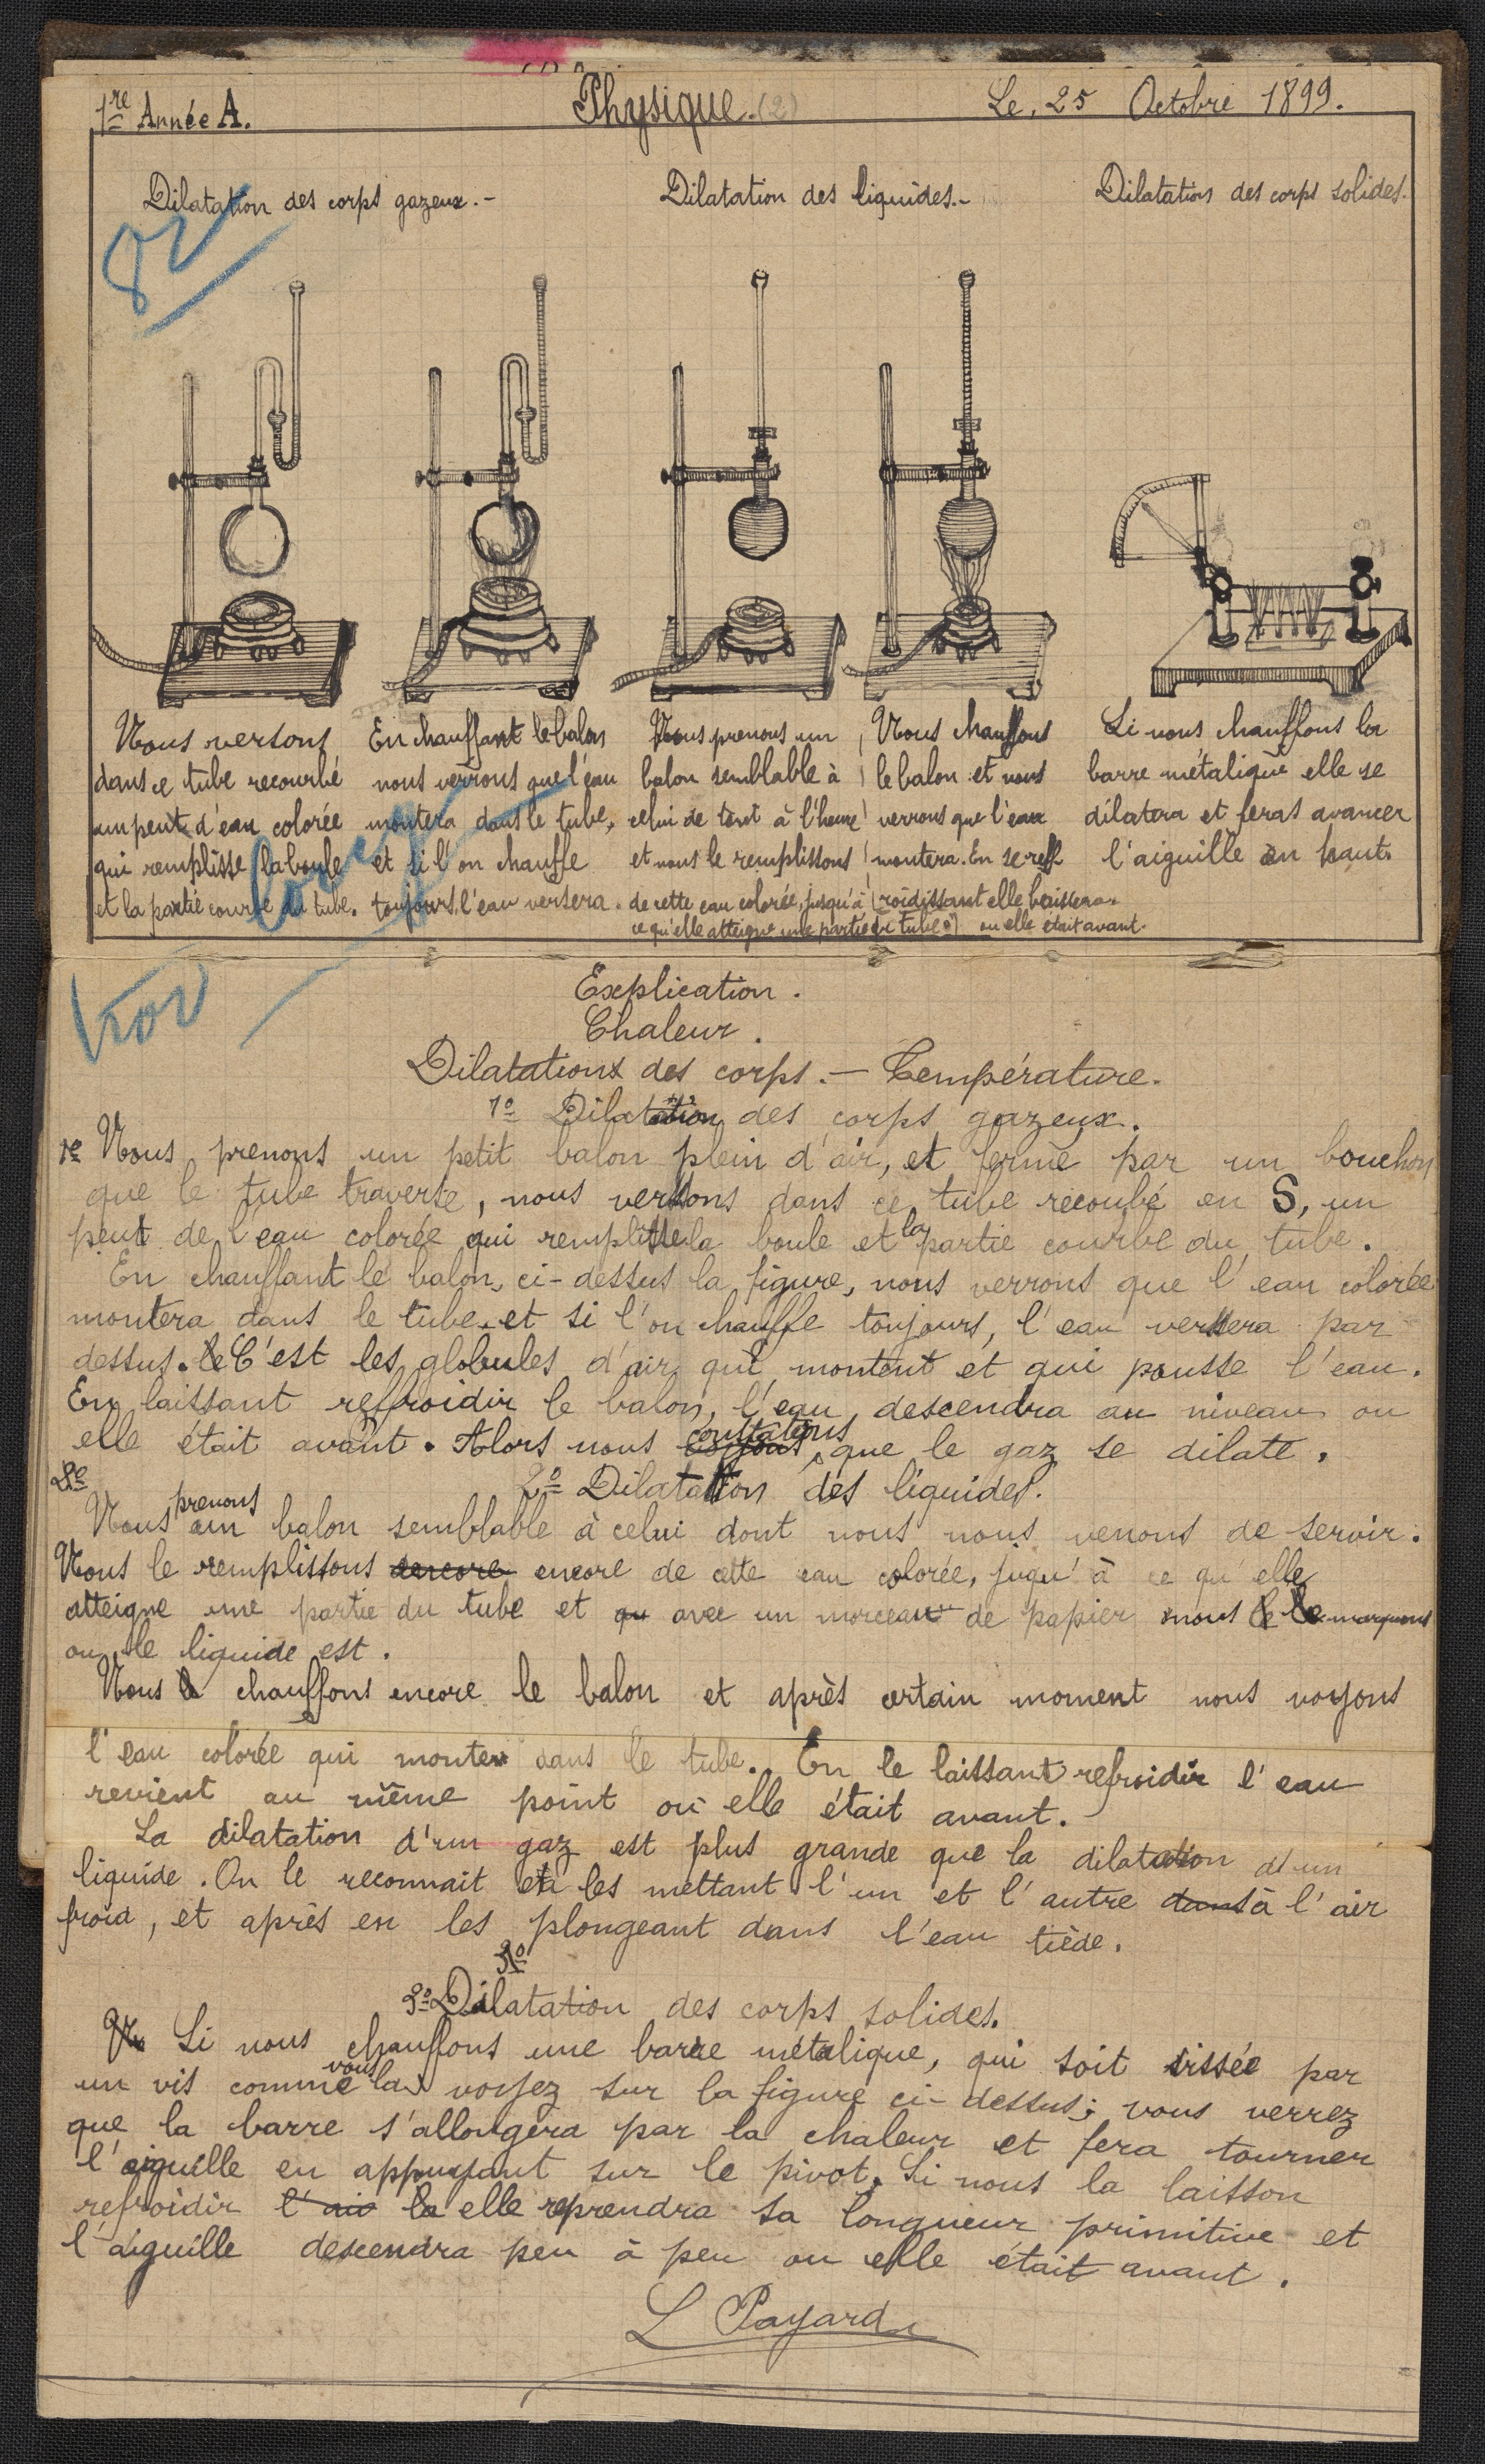 1re Année A.
Physique. (2)
Le, 25 Octobre 1899.
Dilatation des corps gazeux.-
Dilatation des liquides.-
Dilatation des corps solides.
Nous versons
dans ce tube recourbé
un peut d'eau colorée
qui remplisse la boule
et la partie courbe du tube.
En chauffant le balon
nous verrons que l'eau
montera dans le tube,
et si l'on chauffe
toujours, l'eau versera.
Nous prenons un
balon semblable à
celui de tout à l'heure
et nous le remplissons
de cette eau colorée, jusqu'à
ce qu'elle atteigne une partie du tube.
Nous chauffons
le balon et nous
verrons que l'eau
montera. En se ref
roidissant elle baissera
ou elle était avant.
Si nous chauffons la
barre métalique elle se
dilatera et feras avancer
l'aiguille en haut.
Explication.
Chaleur.
Dilatations des corps. - Température.
1o Dilatation des corps gazeux.
1e Nous prenons un petit balon plein d'air, et fermé par un bouchon
que le tube traverse, nous versons dans ce tube recoubé en S, un
peut de l'eau colorée qui remplisse la boule et la partie courbe du tube.
En chauffant le balon, ci-dessus la figure, nous verrons que l'eau colorée
montera dans le tube, et si l'on chauffe toujours, l'eau versera par
dessus. C'est les globules d'air qui montent et qui pousse l'eau.
En laissant refroidir le balon, l'eau descendra au niveau ou
elle était avant. Alors nous constatons que le gaz se dilate.
2e
2o Dilatation des liquides.
Nous prenons un balon semblable à celui dont nous nous venons de servir.
Nous le remplissons encore encore de cette eau colorée, juqu'à ce qu'elle
atteigne une partie du tube et avec un morceau de papier nous le marquons
ou le liquide est.
Nous chauffons encore le balon et après certain moment nous voyons
l'eau colorée qui monte dans le tube. En le laissant refroidir l'eau
revient au même point où elle était avant.
La dilatation d'un gaz est plus grande que la dilatation d'un
liquide. On le reconnait en les mettant l'un et l'autre dans à l'air
froid, et après en les plongeant dans l'eau tiède.
3o
3o Dilatation des corps solides.
Si nous chauffons une barre métalique, qui soit vissée par
un vis comme vous la voyez sur la figure ci-dessus; vous verrez
que la barre s'allongera par la chaleur et fera tourner
l'aiguille en appuyant sur le pivot. Si nous la laisson
refroidir l'ai la elle reprendra sa longueur primitive et
l'aiguille descendra peu à peu ou elle était avant.
L Payard